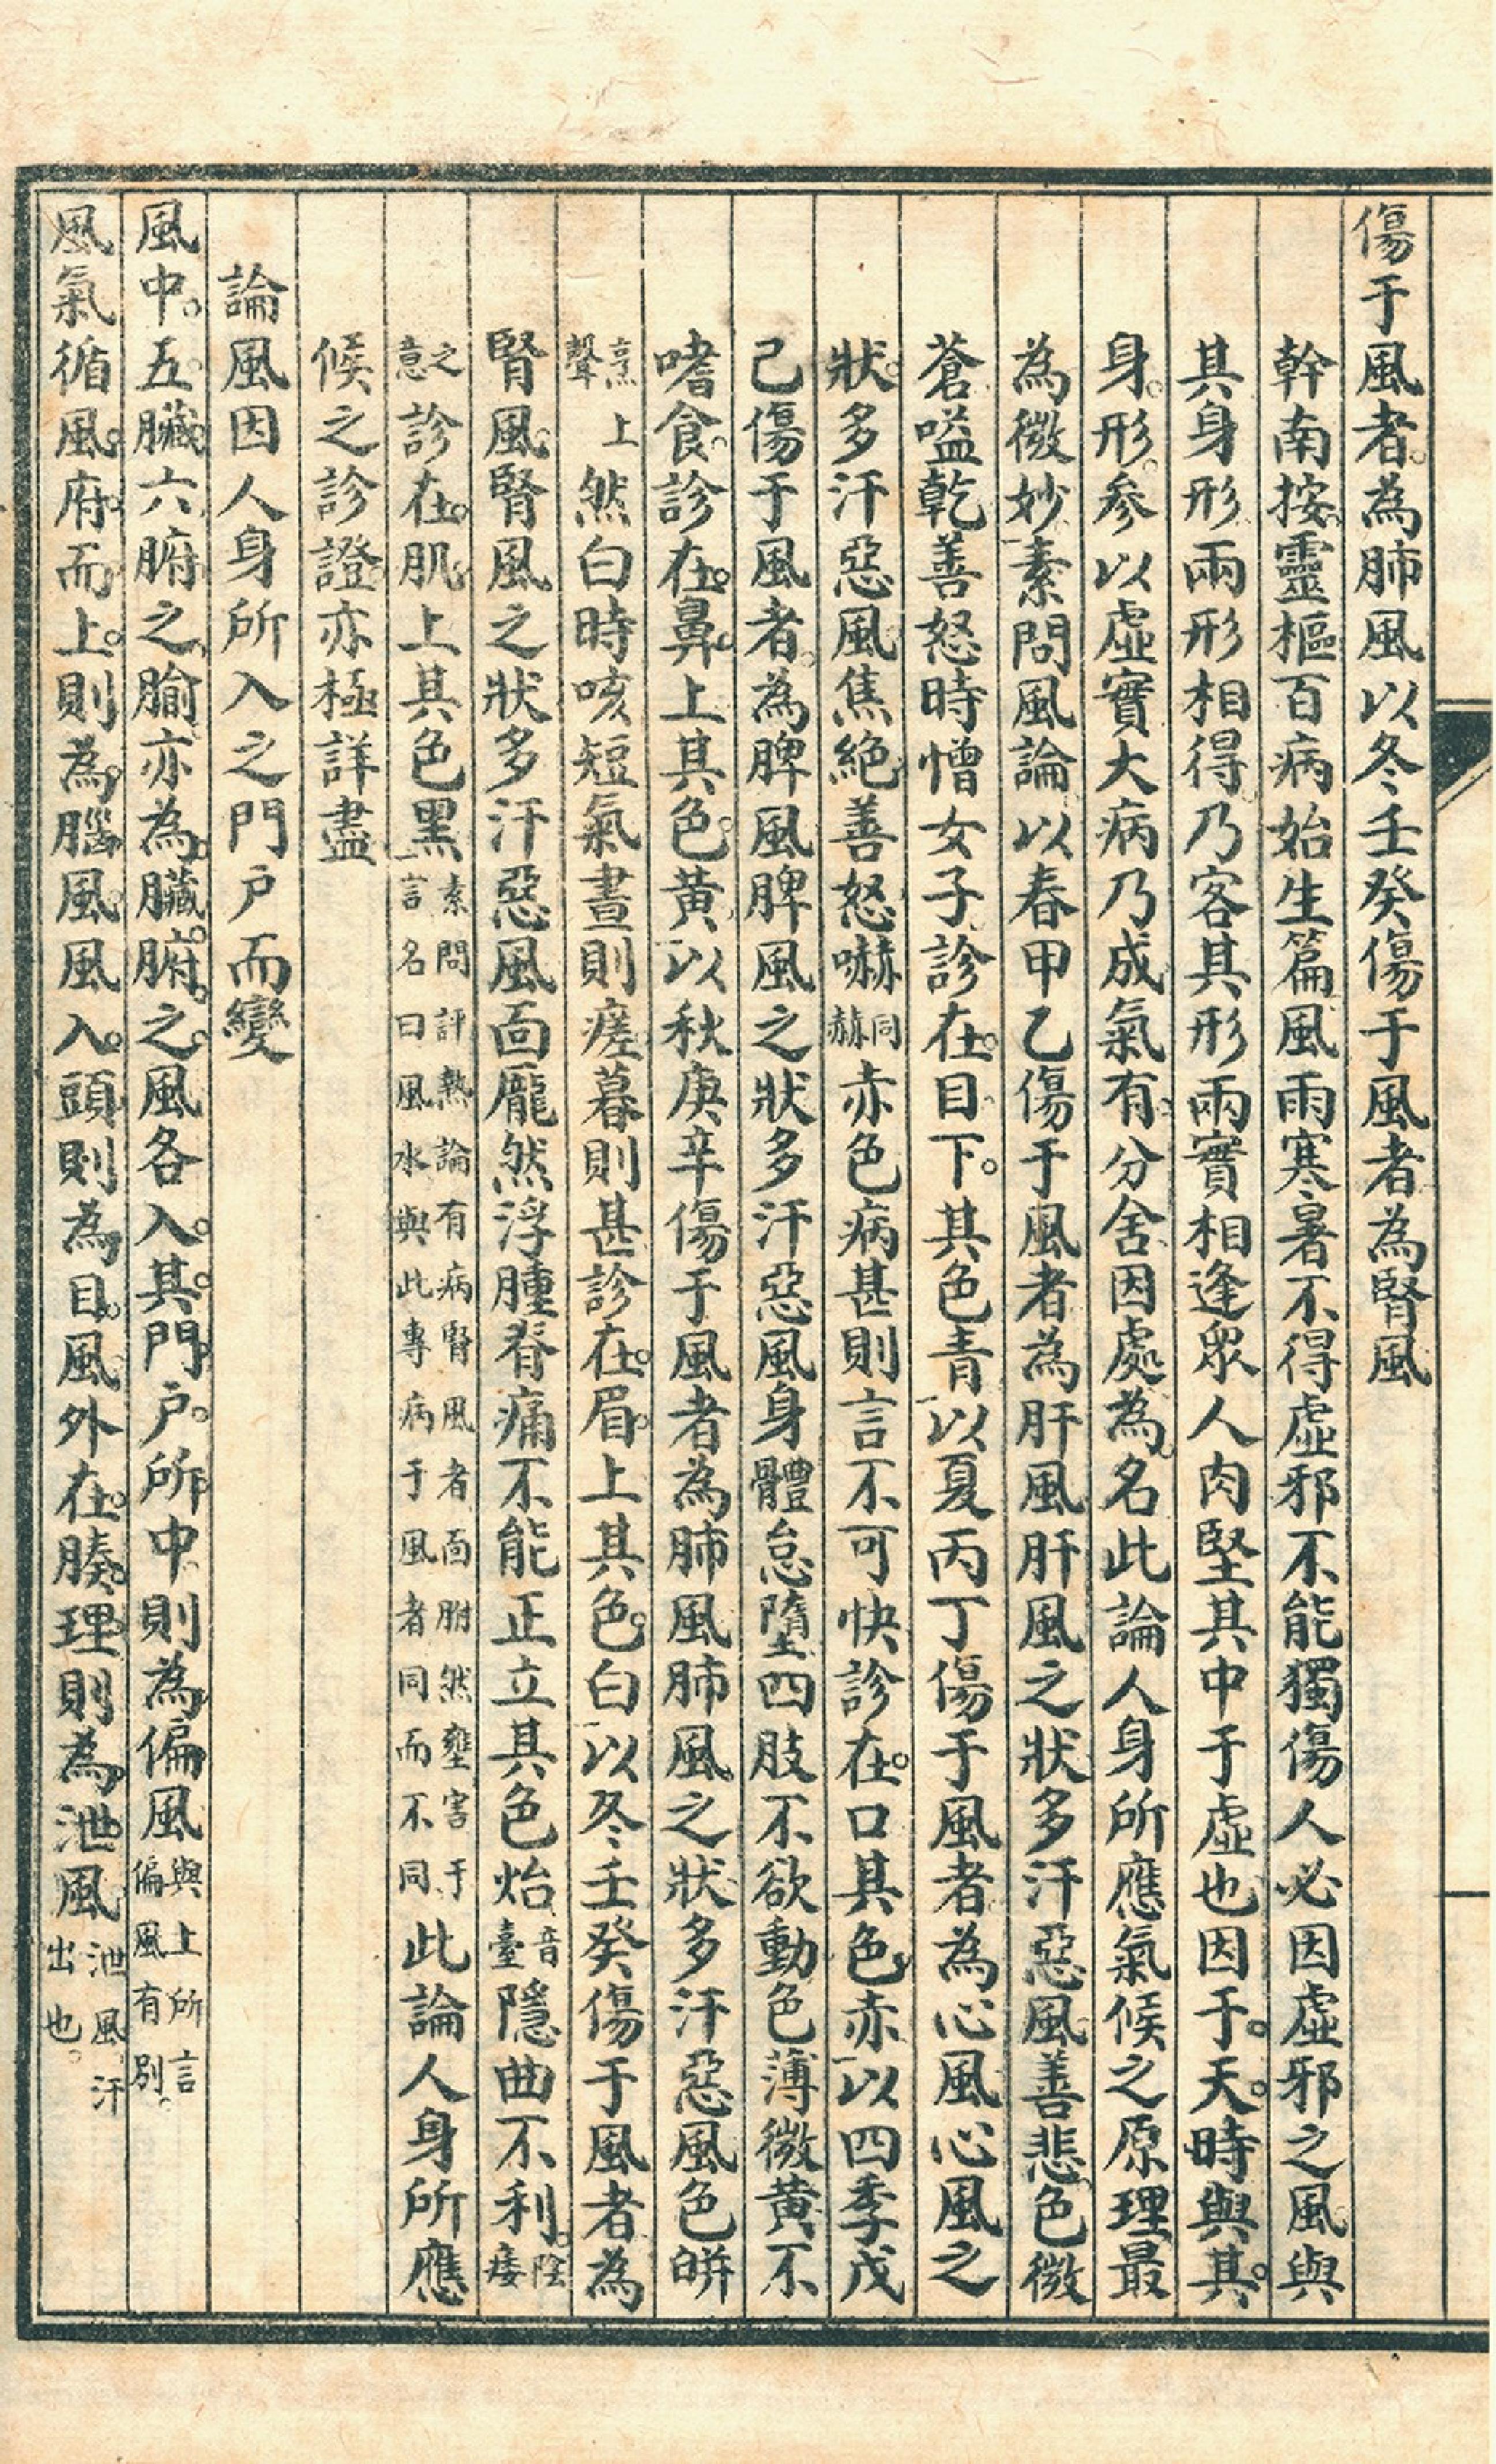 傷于風者。為肺風以冬壬癸傷于風者為腎風
幹南按靈樞百病始生篇風雨寒暑不得虛邪不能獨傷人必因虛邪之風與
其身形兩形相得乃客其形兩實相逢眾人肉堅其中于虛也因于。天。時與其。
身。形。參以虛實大病乃成氣有。分舍因處為名此論人身所應氣候之原理最
為微妙素問風論以春甲乙傷于風者為肝風肝風之狀多汗惡風善悲色微
蒼嗌乾善怒時憎女子診在。目下。其色青以夏丙丁傷于風者為心風心風之
狀。多汗惡風焦絕善怒嚇同赫赤色病甚則言不可快診在。口其色赤以四季戊
己傷于風者。為脾風脾風之狀多汗惡風身體怠墮四肢不欲動色薄微黃不
嗜食。診在。鼻。上其色。黃以秋庚辛傷于風者為肺風肺風之狀多汗惡風色皏
烹上聲然白時咳短氣晝則瘥暮則甚診在。眉。上其色。白以冬壬癸傷于風者為
腎風。腎風之狀多汗惡風面龐然浮腫脊痛不能正立其色炲音臺隱曲不利。陰痿
之意診在。肌上其色黑素問評熱論有病腎風者面胕然壅害于言名曰風水與此專病于風者同而不同此論人身所應
候之診證亦極詳盡
論風因人身所入之門戶而變
風中。五。臟。六腑之腧亦為。臟。腑。之。風各入。其。門戶。所中則為偏風與上所言偏風有別。
風氣循風。府。而上。則為。腦。風風入。頭則為目。風外在。腠。理則為泄風泄風汗出也。